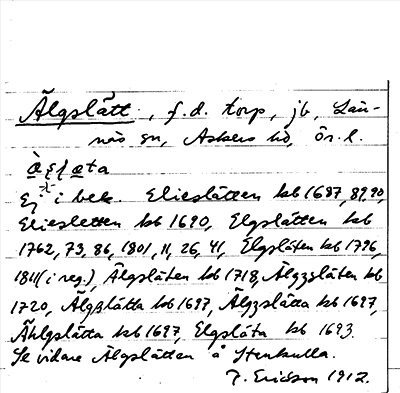 Älgslätt, f.d. torp, jb, Län-
näs sn, Askers hd, Ör. l.
Ej i bek. Elieslätten kb 1687, 89, 90,
Eliesletten kb 1690, Elgslätten kb
1762, 73, 86, 1801, 11, 26, 41, Elgsläten kb 1796,
1811 (i reg.), Älgsläten kb 1718, Älgzsläten kb
1720, Älgsslätta kb 1697, Älgzslätta kb 1697,
Ählgslätta kb 1697, Elgsläta kb 1693.
Se vidare Älgslätten å Stenkulla.
J. Ericson 1912.